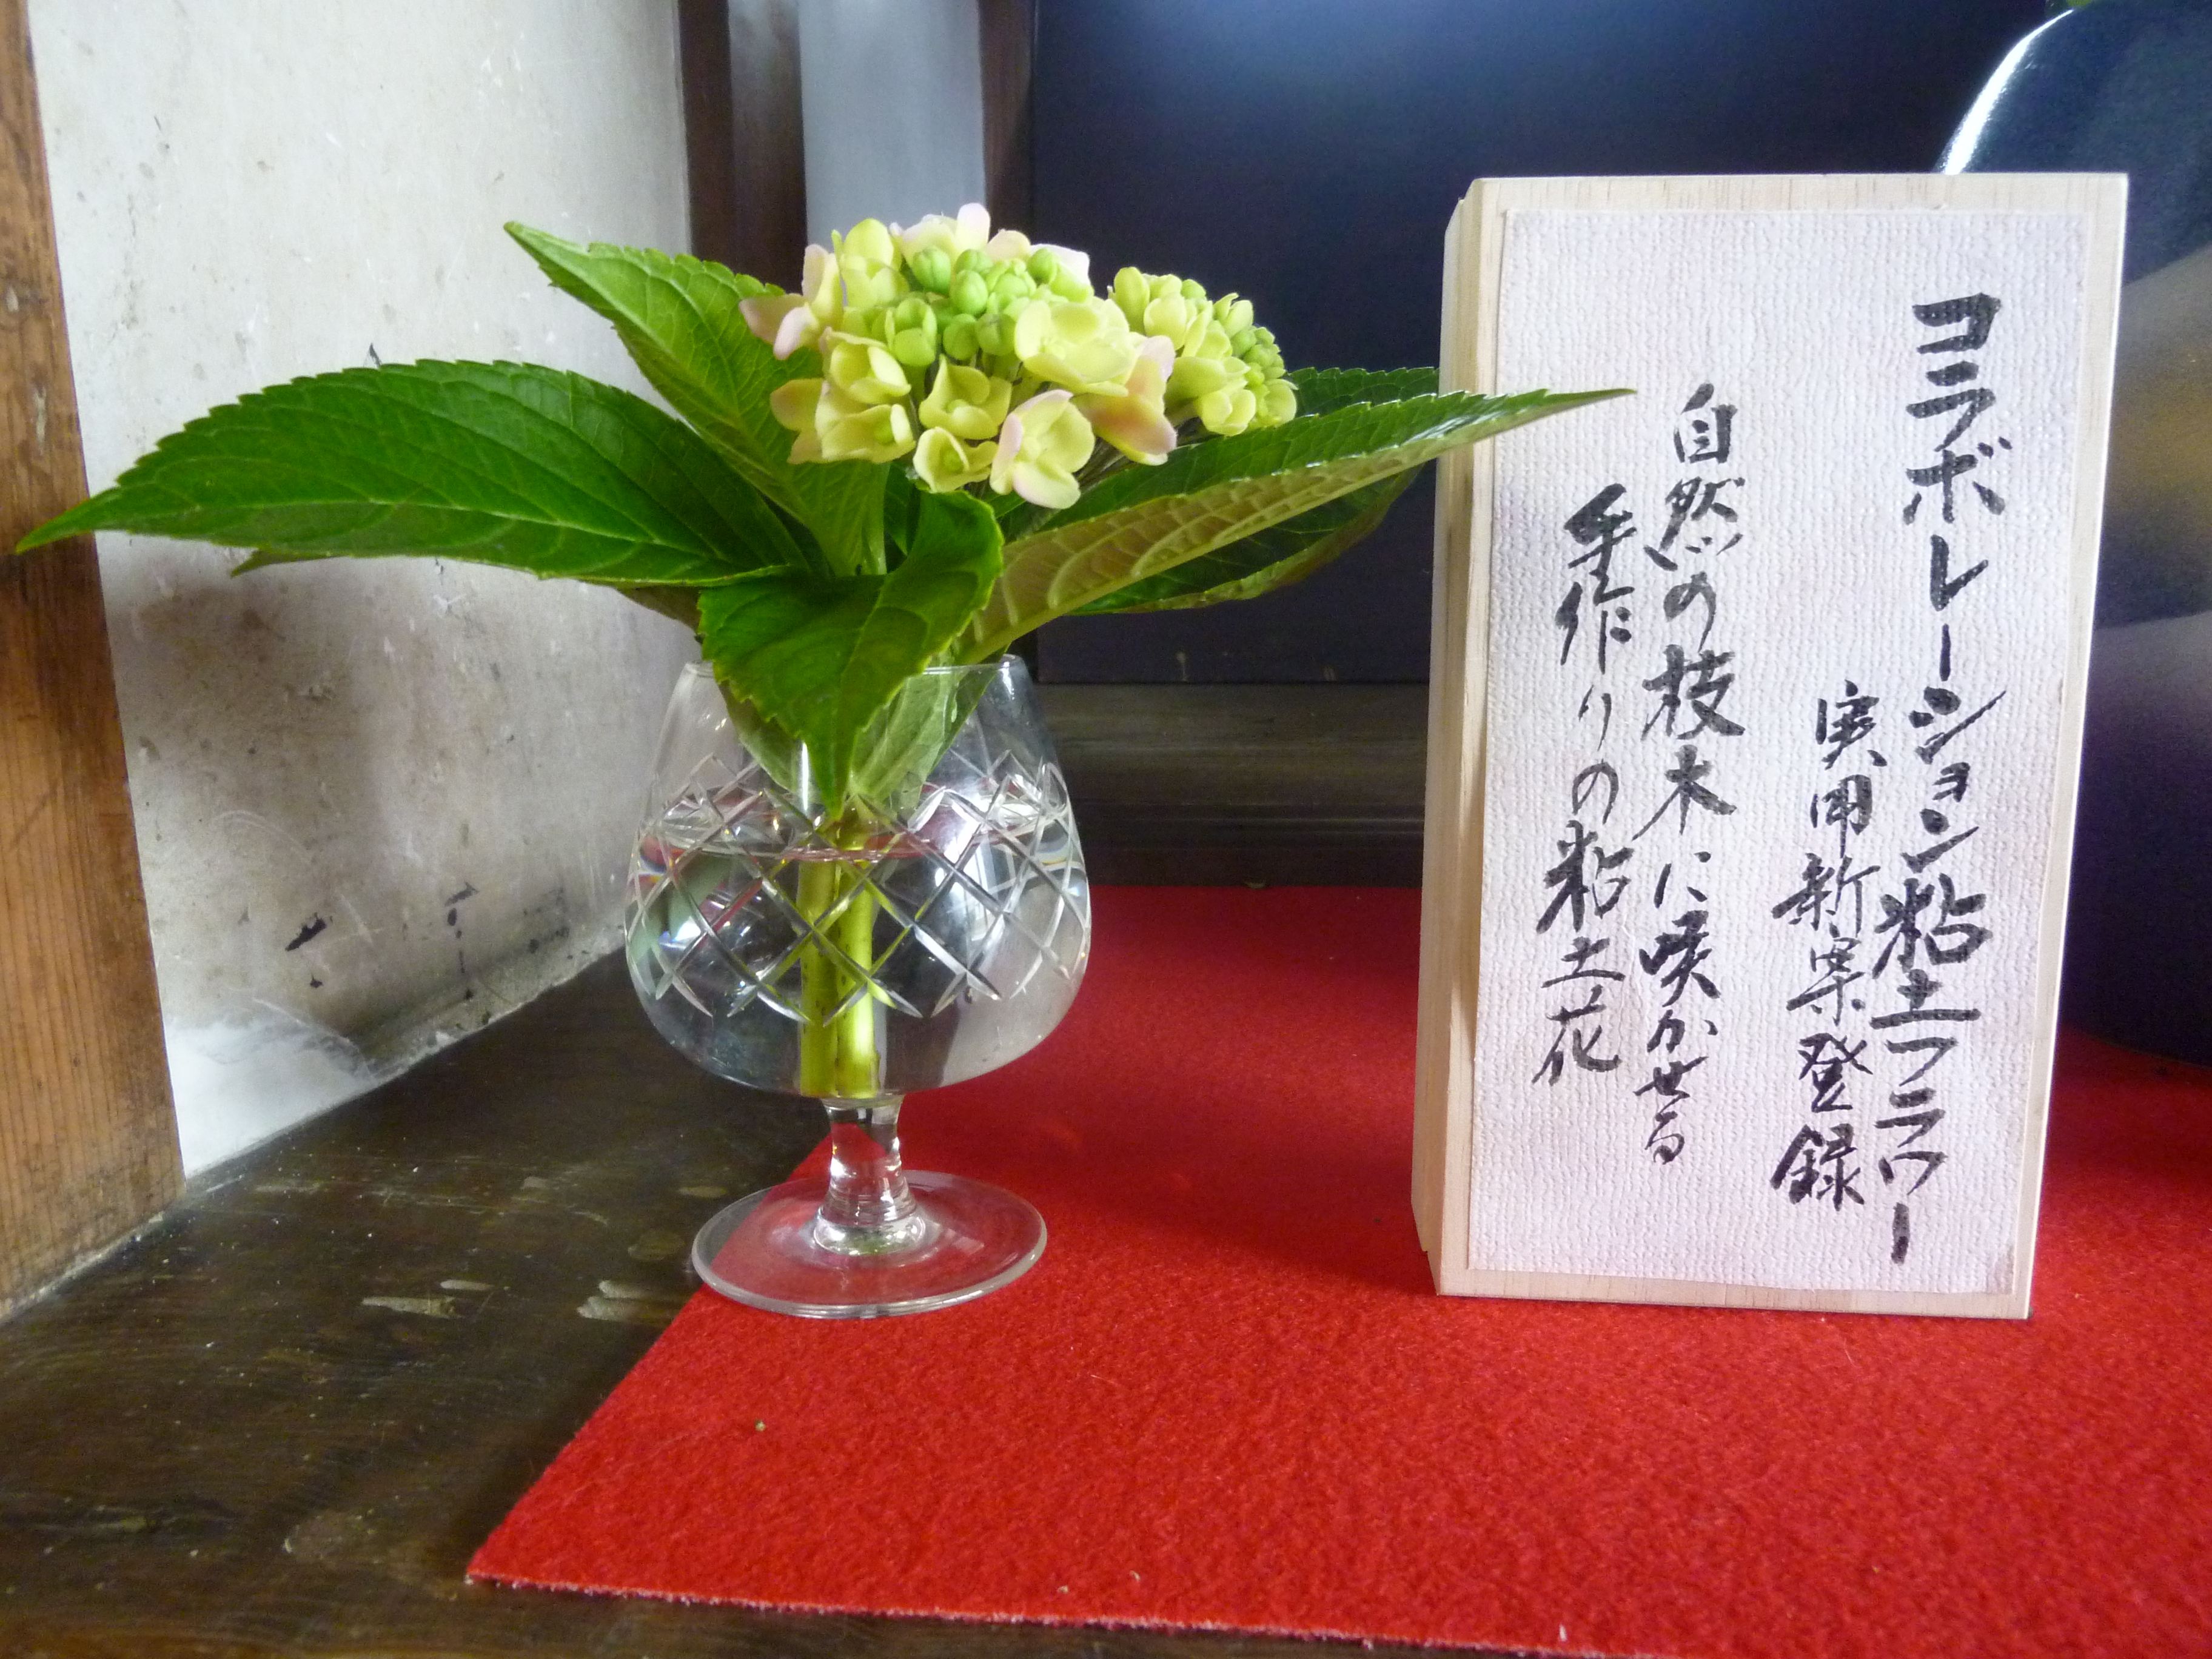 コラボレーション粘土フラワー
実用新案登録
自然の枝木に咲かせる
手作りの粘土花